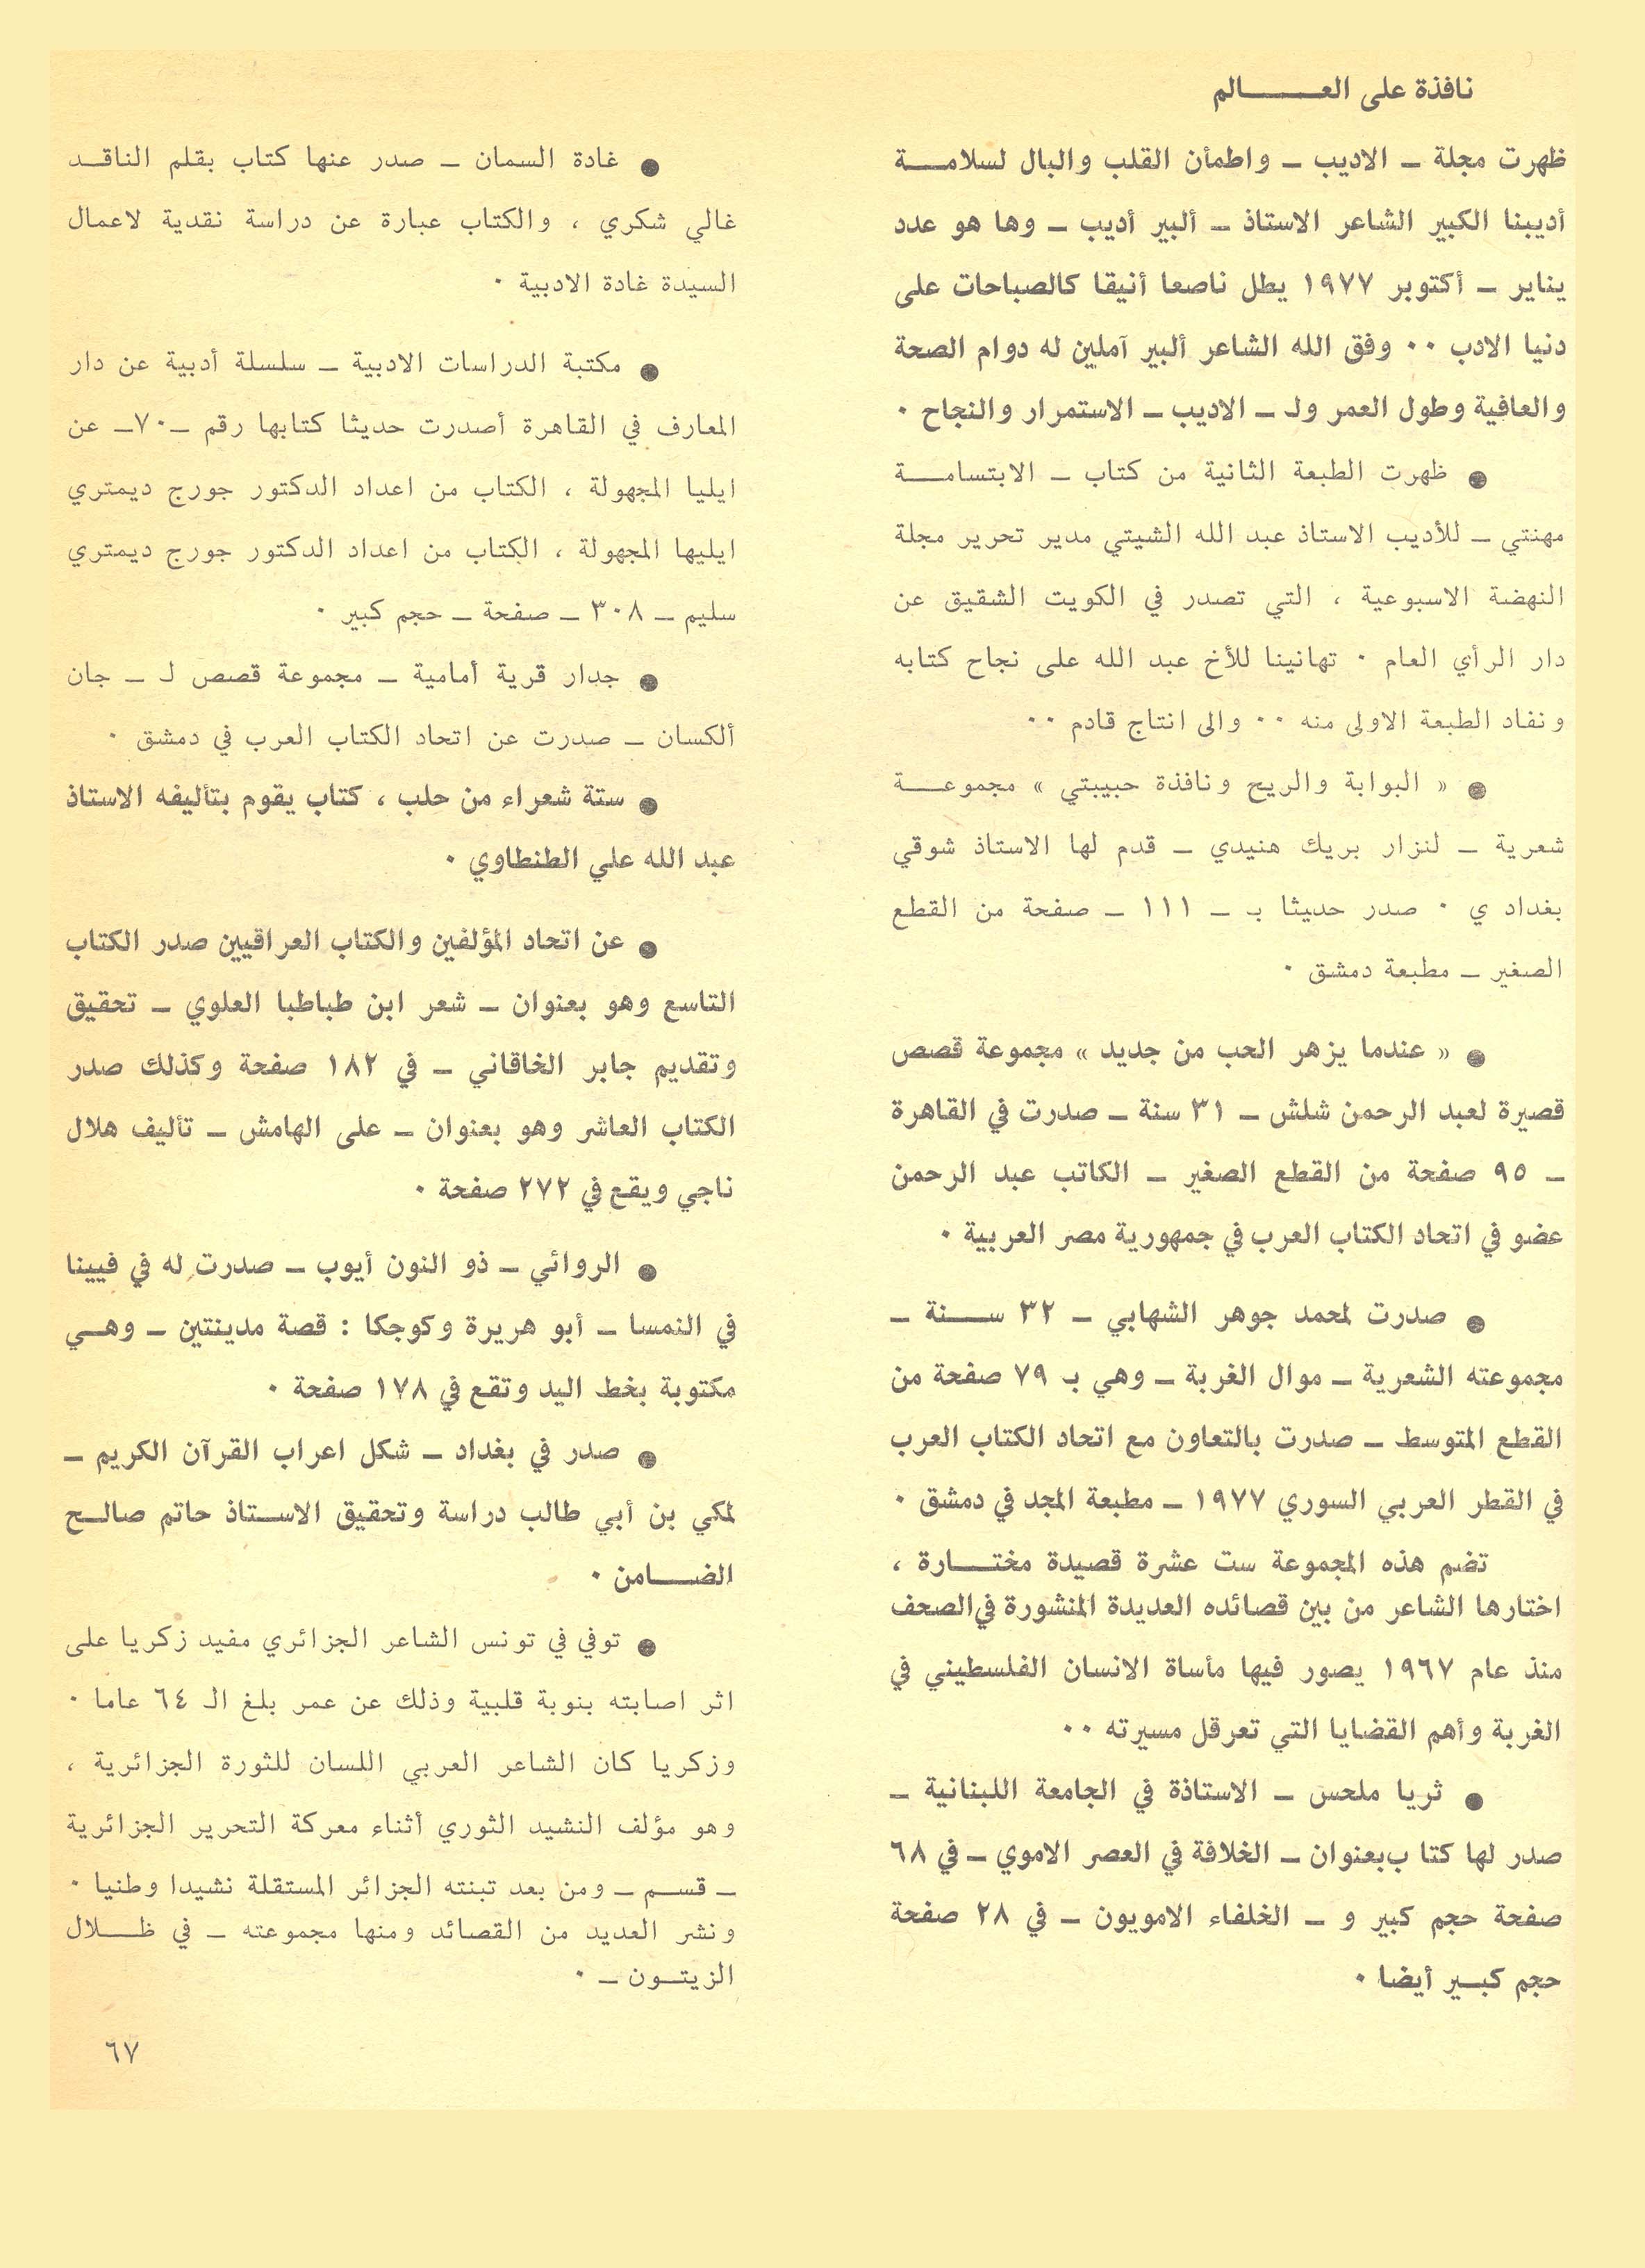 نافذة على العـــــــالم
ظهرت مجلة ــ الاديب ــ واطمأن القلب والبال لسلامـــة
أديبنا الكبير الشاعر الاستاذ ــ ألبير أديب ــ وها هو عدد
يناير ــ أكتوبر ١٩٧٧ يطل ناصعا أنيقا كالصباحات على
دنيا الادب ٠٠ وفق الله الشاعر ألبير آملين له دوام الصحة
والعافية وطول العمر ولـ ــ الاديب ــ الاستمرار والنجاح ٠
● ظهرت الطبعة الثانية من كتاب ــ الابتسامـــة
مهنتي ــ للأديب الاستاذ عبد الله الشيتي مدير تحرير مجلة
النهضة الاسبوعية ، التي تصدر في الكويت الشقيق عن
دار الرأي العام ٠ تهانينا للأخ عبد الله على نجاح كتابه
ونفاد الطبعة الاولى منه ٠٠ والى انتاج قادم ٠٠
● « البوابة والريح ونافذة حبيبتي » مجموعـــة
شعرية ــ لنزار بريك هنيدي ــ قدم لها الاستاذ شوقي
بغداد ي ٠ صدر حديثا بـ ــ ١١١ ــ صفحة من القطع
الصغير ــ مطبعة دمشق ٠
● « عندما يزهر الحب من جديد » مجموعة قصص
قصيرة لعبد الرحمن شلش ــ ٣١ سنة ــ صدرت في القاهرة
ــ ٩٥ صفحة من القطع الصغير ــ الكاتب عبد الرحمن
عضو في اتحاد الكتاب العرب في جمهورية مصر العربية ٠
● صدرت لمحمد جوهر الشهابي ــ ٣٢ ســـنة ــ
مجموعته الشعرية ــ موال الغربة ــ وهي بـ ٧٩ صفحة من
القطع المتوسط ــ صدرت بالتعاون مع اتحاد الكتاب العرب
في القطر العربي السوري ١٩٧٧ ــ مطبعة المجد في دمشق ٠
تضم هذه المجموعة ست عشرة قصيدة مختـــارة ،
اختارها الشاعر من بين قصائده العديدة المنشورة في الصحف
منذ عام ١٩٦٧ يصور فيها مأساة الانسان الفلسطيني في
الغربة وأهم القضايا التي تعرقل مسيرته ٠٠
● ثريا ملحس ــ الاستاذة في الجامعة اللبنانية ــ
صدر لها كتا ب بعنوان ــ الخلافة في العصر الاموي ــ في ٦٨
صفحة حجم كبير و ــ الخلفاء الامويون ــ في ٢٨ صفحة
حجم كبــير أيضا ٠
● غادة السمان ــ صدر عنها كتاب بقلم الناقــد
غالي شكري ، والكتاب عبارة عن دراسة نقدية لاعمال
السيدة غادة الادبية ٠
● مكتبة الدراسات الادبية ــ سلسلة أدبية عن دار
المعارف في القاهرة أصدرت حديثا كتابها رقم ــ٧٠ــ عن
ايليا المجهولة ، الكتاب من اعداد الدكتور جورج ديمتري
ايليها المجهولة ، الكتاب من اعداد الدكتور جورج ديمتري
سليم ــ ٣٠٨ ــ صفحة ــ حجم كبير ٠
● جدار قرية أمامية ــ مجموعة قصص لـ ــ جان
ألكسان ــ صدرت عن اتحاد الكتاب العرب في دمشق ٠
● ستة شعراء من حلب ، كتاب يقوم بتأليفه الاستاذ
عبد الله علي الطنطاوي ٠
● عن اتحاد المؤلفين والكتاب العراقيين صدر الكتاب
التاسع وهو بعنوان ــ شعر ابن طباطبا العلوي ــ تحقيق
وتقديم جابر الخاقاني ــ في ١٨٢ صفحة وكذلك صدر
الكتاب العاشر وهو بعنوان ــ على الهامش ــ تأليف هلال
ناجي ويقع في ٢٧٢ صفحة ٠
● الروائي ــ ذو النون أيوب ــ صدرت له في فيينا
في النمسا ــ أبو هريرة وكوجكا : قصة مدينتين ــ وهــي
مكتوبة بخط اليد وتقع في ١٧٨ صفحة ٠
● صدر في بغداد ــ شكل اعراب القرآن الكريم ــ
لمكي بن أبي طالب دراسة وتحقيق الاســتاذ حاتم صالــح
الضـــامن ٠
● توفي في تونس الشاعر الجزائري مفيد زكريا على
اثر اصابته بنوبة قلبية وذلك عن عمر بلغ الـ ٦٤ عاما ٠
وزكريا كان الشاعر العربي اللسان للثورة الجزائرية ،
وهو مؤلف النشيد الثوري أثناء معركة التحرير الجزائرية
ــ قســم ــ ومن بعد تبنته الجزائر المستقلة نشيدا وطنيا ٠
ونشر العديد من القصائد ومنها مجموعته ــ في ظـــلال
الزيتــون ــ ٠
٦٧